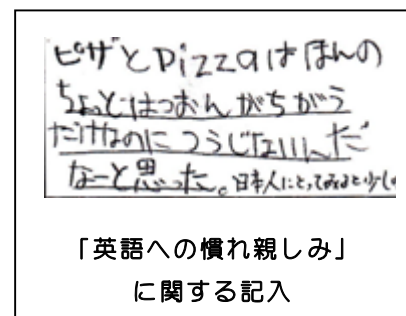 ピザとpizzaはほんの
ちょっとはつおんがちがう
だけなのにつうじないんだ
なーと思った。日本人にとってみると少し
「英語への慣れ親しみ」
に関する記入